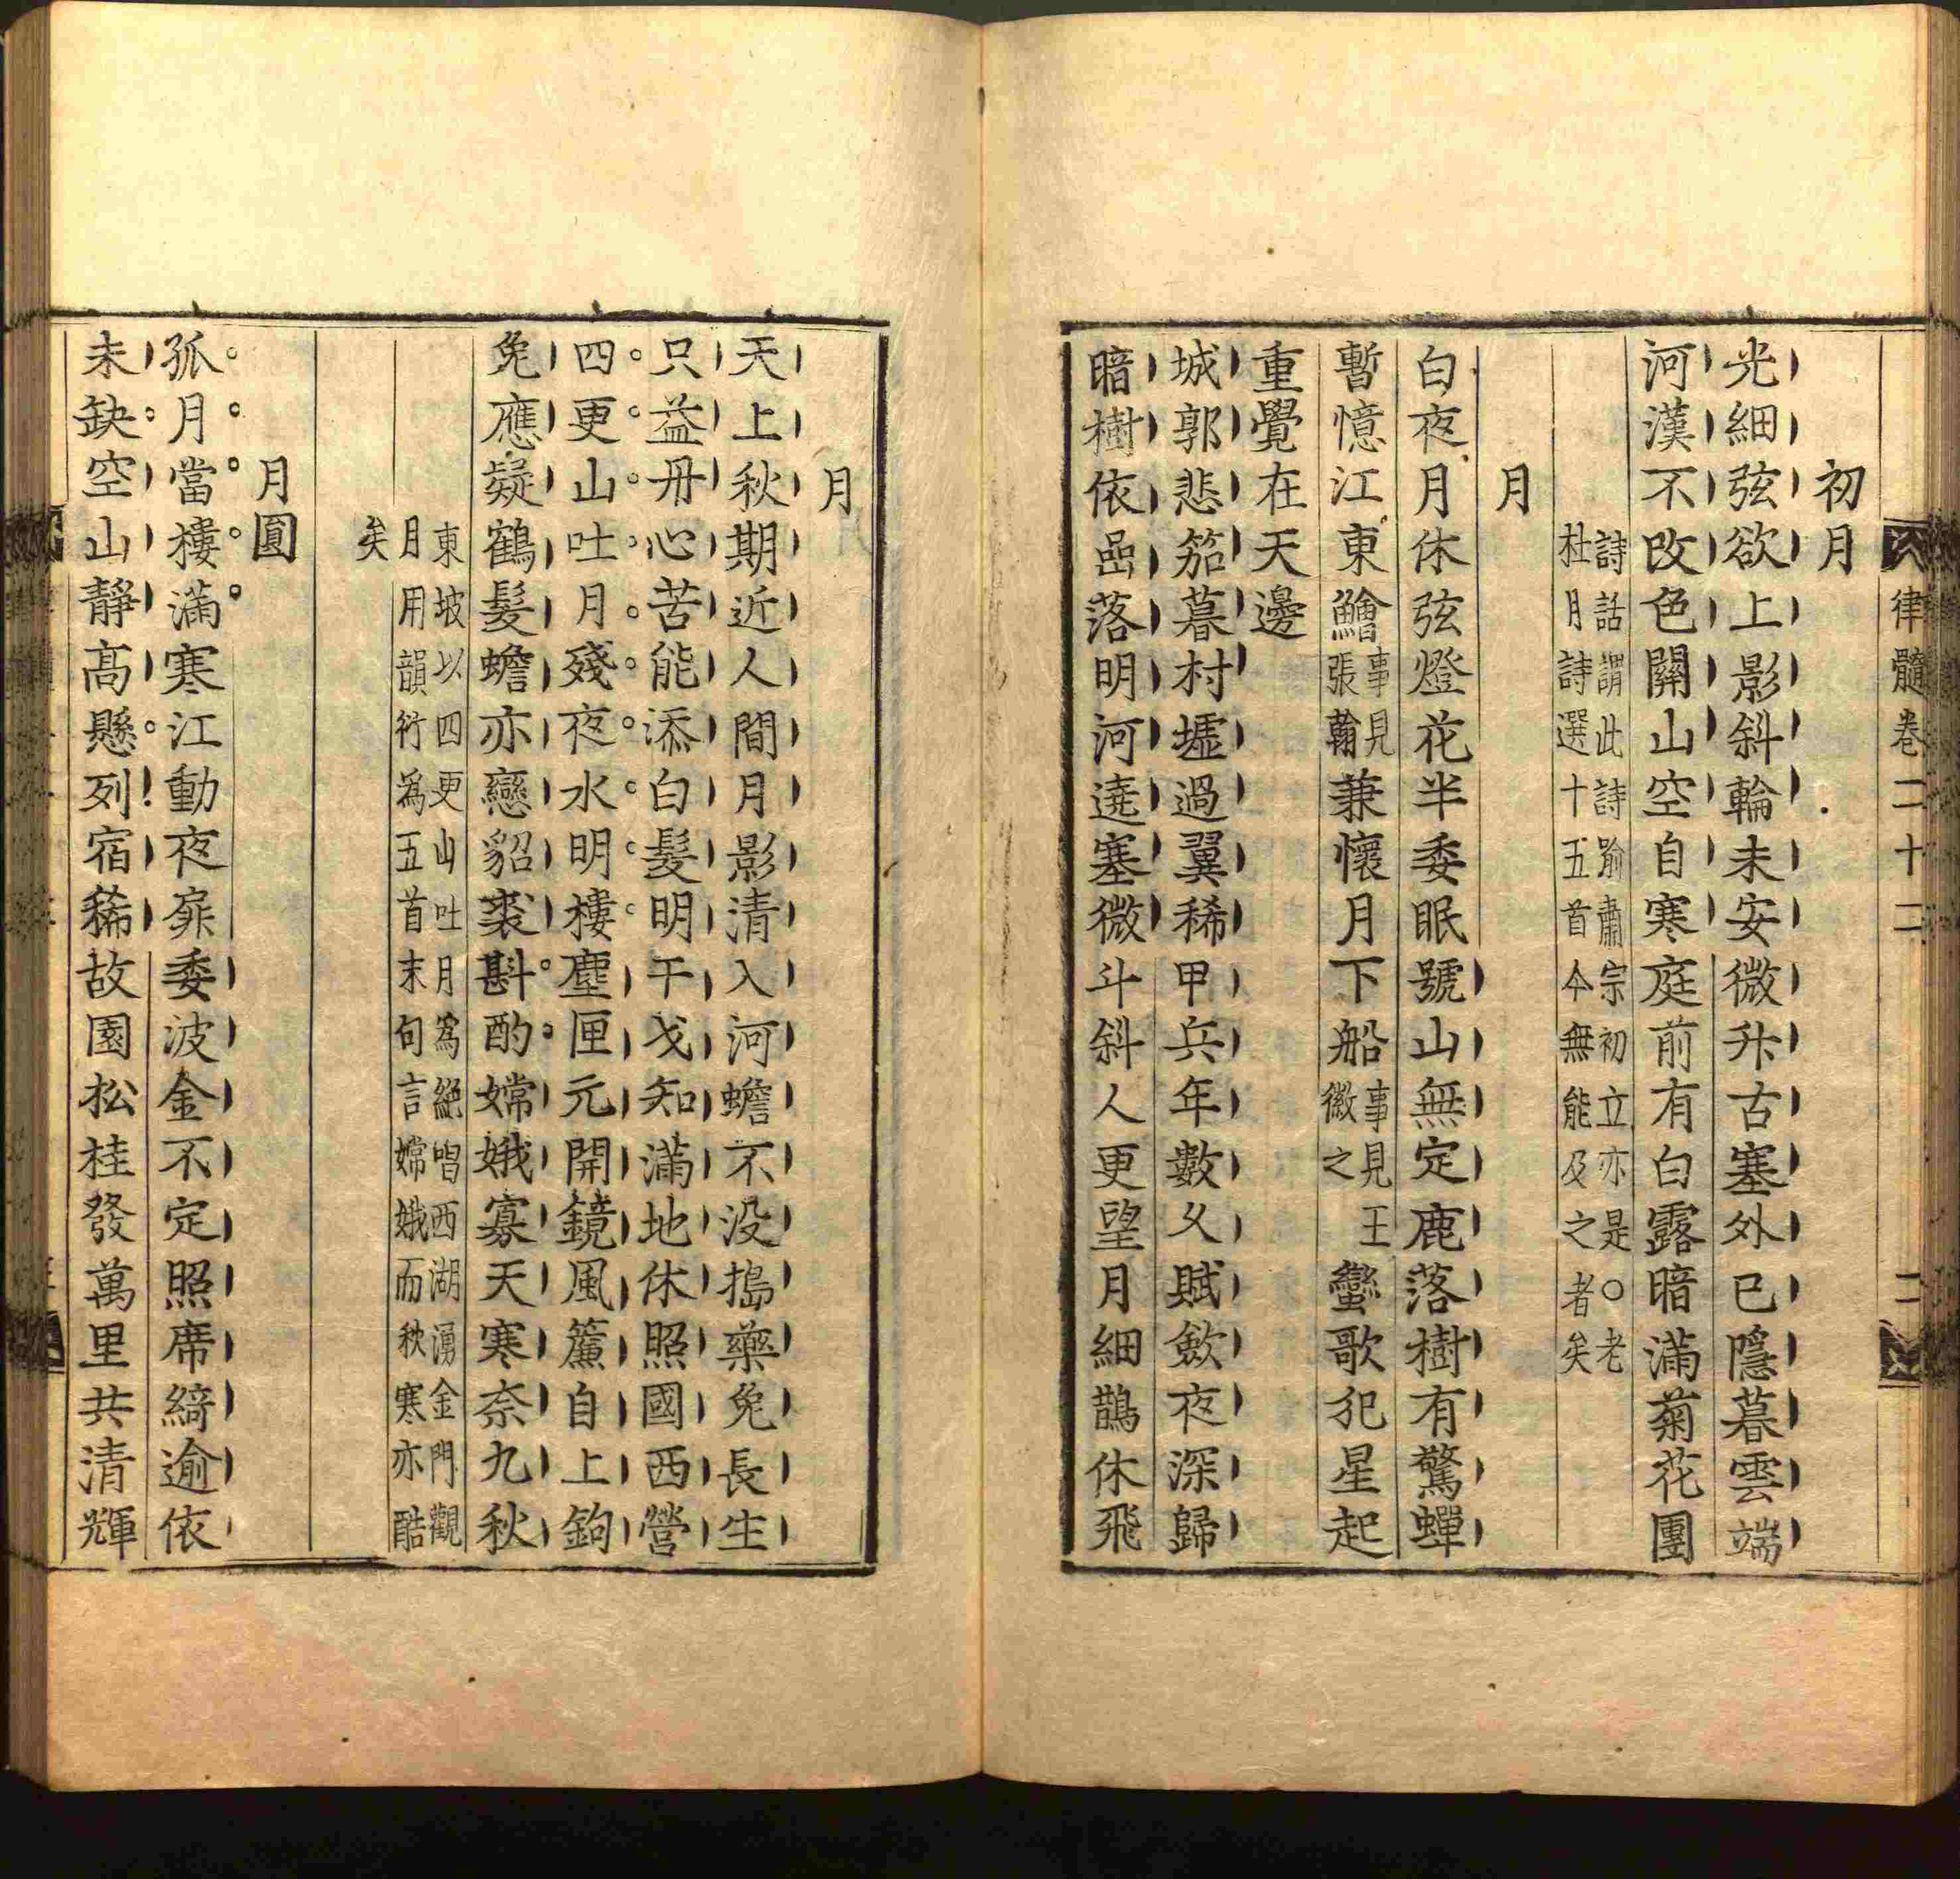 律髓卷二十二
二
初月
光細弦欲上影斜輪未安微升古塞外已隱暮雲端
河漢不改色關山空自寒庭前有白露暗滿菊花團
詩話謂此詩踰肅宗初立亦是○老
杜月詩選十五首今無能及之者矣
月
白夜月休弦燈花半委眠號山無定鹿落樹有驚蟬
暫憶江東鱠事見張翰兼懷月下船事見王徽之蠻歌犯星起
重覺在天邊
城郭悲笳暮村墟過翼稀甲兵年數久賦斂夜深歸
暗樹依嵒落明河遶塞微斗斜人更望月細鵲休飛
月
天上秋期近人間月影清入河蟾不没搗藥兔長生
只益丹心苦能添白髮明干戈知滿地休照國西營
四更山吐月殘夜水明樓塵匣元開鏡風簾自上鉤
兔應疑鶴髮蟾亦戀貂裘斟酌嫦娥寡天寒奈九秋
東坡以四更山吐月爲絕唱西湖湧金門觀
月用韻衍爲五首末句言嫦娥而秋寒亦酷
矣
月圓
孤月當樓滿寒江動夜扉委波金不定照席綺逾依
未缺空山靜高懸列宿稀故園松桂發萬里共清輝